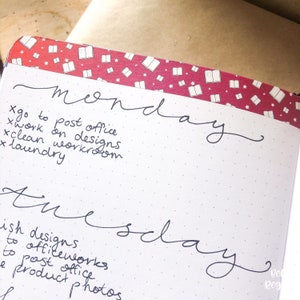 monday
xgo to post office
xwork on designs
xclean workroom
xlaundry
tuesday
ish designs
to officeworks
to post office
product photos